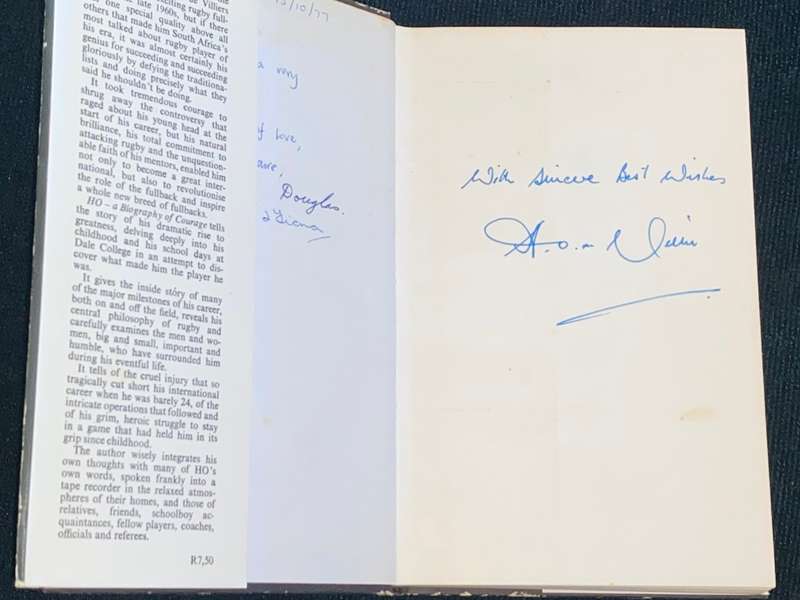 de Villiers
exciting rugby full-
late 1960s, but if there
one special quality above all
others that made him South Africa's
most talked about rugby player of
his era, it was almost certainly his
genius for succeeding and succeeding
gloriously by defying the traditiona-
lists and doing precisely what they
said he shouldn't be doing.
It took tremendous courage to
shrug away the controversy that
raged about his young head at the
start of his career, but his natural
brilliance, his total commitment to
attacking rugby and the unquestion-
able faith of his mentors, enabled him
not only to become a great inter-
national, but also to revolutionise
the role of the fullback and inspire
a whole new breed of fullbacks.
HO – a Biography of Courage tells
the story of his dramatic rise to
greatness, delving deeply into his
childhood and his school days at
Dale College in an attempt to dis-
cover what made him the player he
was.
It gives the inside story of many
of the major milestones of his career,
both on and off the field, reveals his
central philosophy of rugby and
carefully examines the men and wo-
men, big and small, important and
humble, who have surrounded him
during his eventful life.
It tells of the cruel injury that so
tragically cut short his international
career when he was barely 24, of the
intricate operations that followed and
of his grim, heroic struggle to stay
in a game that had held him in its
grip since childhood.
The author wisely integrates his
own thoughts with many of HO's
own words, spoken frankly into a
tape recorder in the relaxed atmos-
pheres of their homes, and those of
relatives, friends, schoolboy ac-
quaintances, fellow players, coaches,
officials and referees.
R7,50
/10/77
a very
of love,
Douglas.
With Sincere Best Wishes
H.O. de Villiers